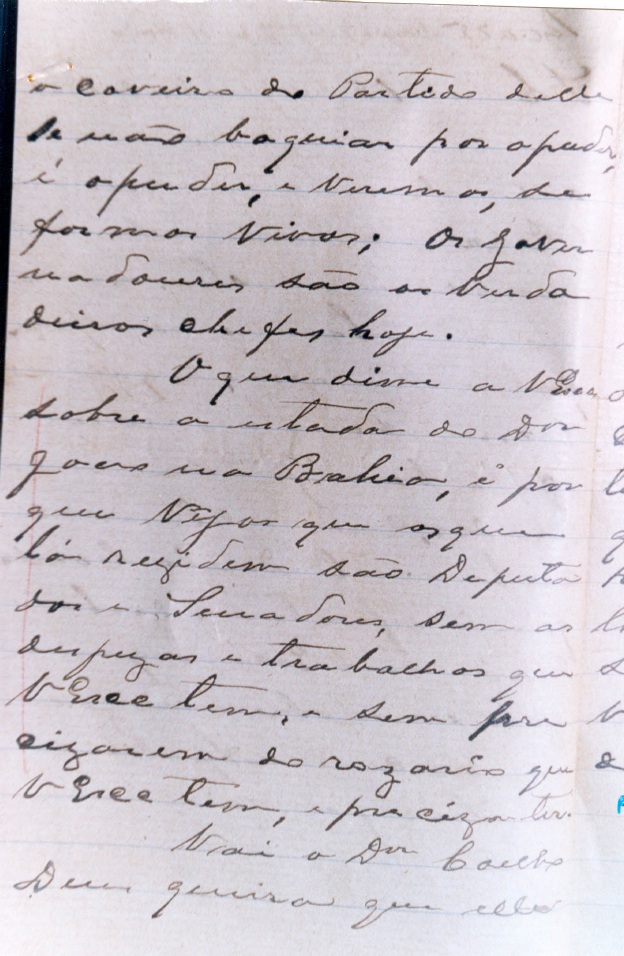 o caveira do Partido delle
se não baquiar por apuder,
é apuder, e veremos, se
formos vivos; Os Gover
nadoures são os verda
deiros chefes hoje.
O que disse a VExca
sobre a estada do Dor
goes na Bahia, é por
que vejos que os que
lá rezidem são Deputa
dos e Senadores, sem as
despezas e trabalhos que
VExce tem, e sem pre
cizarem do rozario que
VExce tem, e precizater.
Vai o Dor Coelho
Deus queira que elle